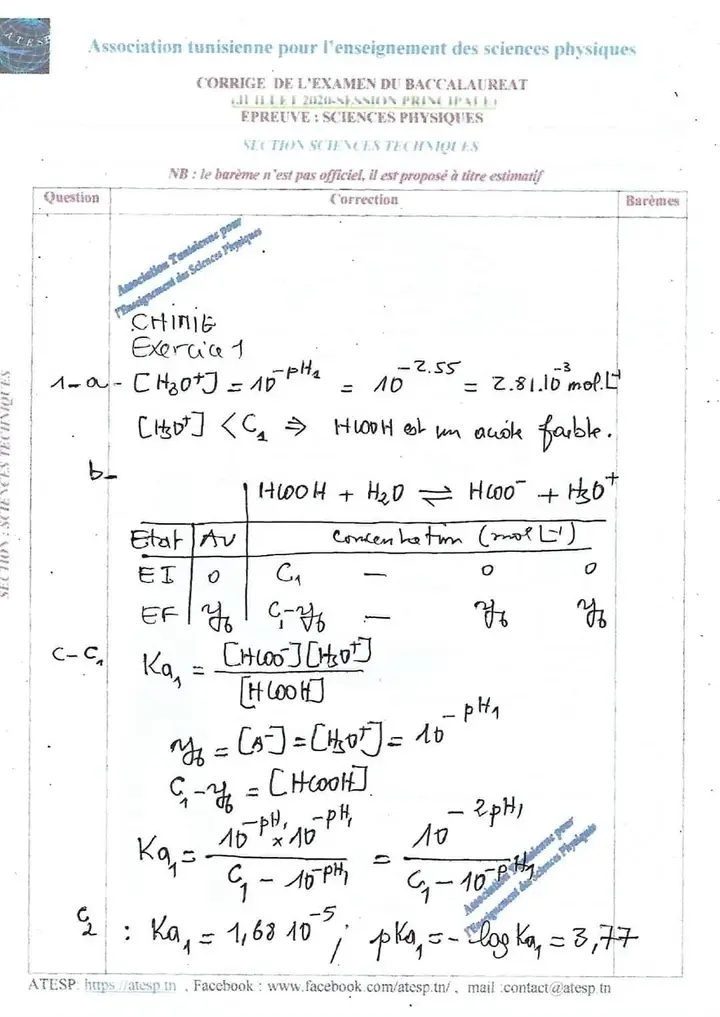 ATESP
Association tunisienne pour l'enseignement des sciences physiques
CORRIGE DE L'EXAMEN DU BACCALAUREAT
(JUILLET 2020-SESSION PRINCIPALE)
EPREUVE : SCIENCES PHYSIQUES
SECTION SCIENCES TECHNIQUES
NB : le barème n'est pas officiel, il est proposé à titre estimatif
Question Correction Barèmes
Association Tunisienne pour
l'Enseignement des Sciences Physiques
CHIMIE
Exercice 1
1-a- [H3O+] = 10^-pH1 = 10^-2.55 = 2.81.10^-3 mol.L^-1
[H3O+] < C1 ⇒ HCOOH est un acide faible.
b-
HCOOH + H2O ⇌ HCOO^- + H3O^+
Etat Av Concentration (mol L^-1)
EI 0 C1 — 0 0
EF yf C1-yf — yf yf
c-c1 Ka1 = [HCOO^-][H3O^+] / [HCOOH]
yf = [A^-] = [H3O^+] = 10^-pH1
C1-yf = [HCOOH]
Ka1 = 10^-pH1 × 10^-pH1 / C1 - 10^-pH1 = 10^-2pH1 / C1 - 10^-pH1
Association Tunisienne pour
l'Enseignement des Sciences Physiques
c2 : Ka1 = 1,68 10^-5 ; pKa1 = -log Ka1 = 3,77
SECTION : SCIENCES TECHNIQUES
ATESP: https://atesp.tn , Facebook : www.facebook.com/atesp.tn/ , mail :contact@atesp.tn